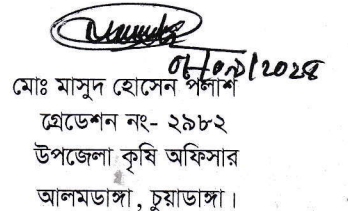 মোঃ মাসুদ হোসেন পলাশ
গ্রেডেশন নং- ২৯৮২
উপজেলা কৃষি অফিসার
আলমডাঙ্গা, চুয়াডাঙ্গা।